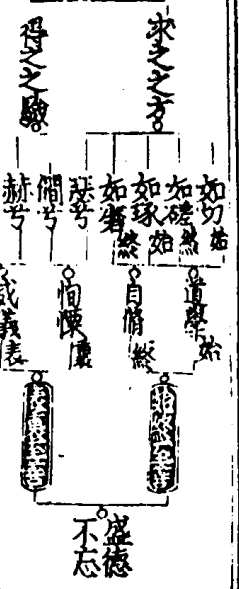 求之之方
得之之驗
如切 始
如磋 終
如琢 始
如磨 終
瑟兮
僩兮
赫兮
道學 始
自脩 終
恂慄 裏
威儀 表
盛德
不忘